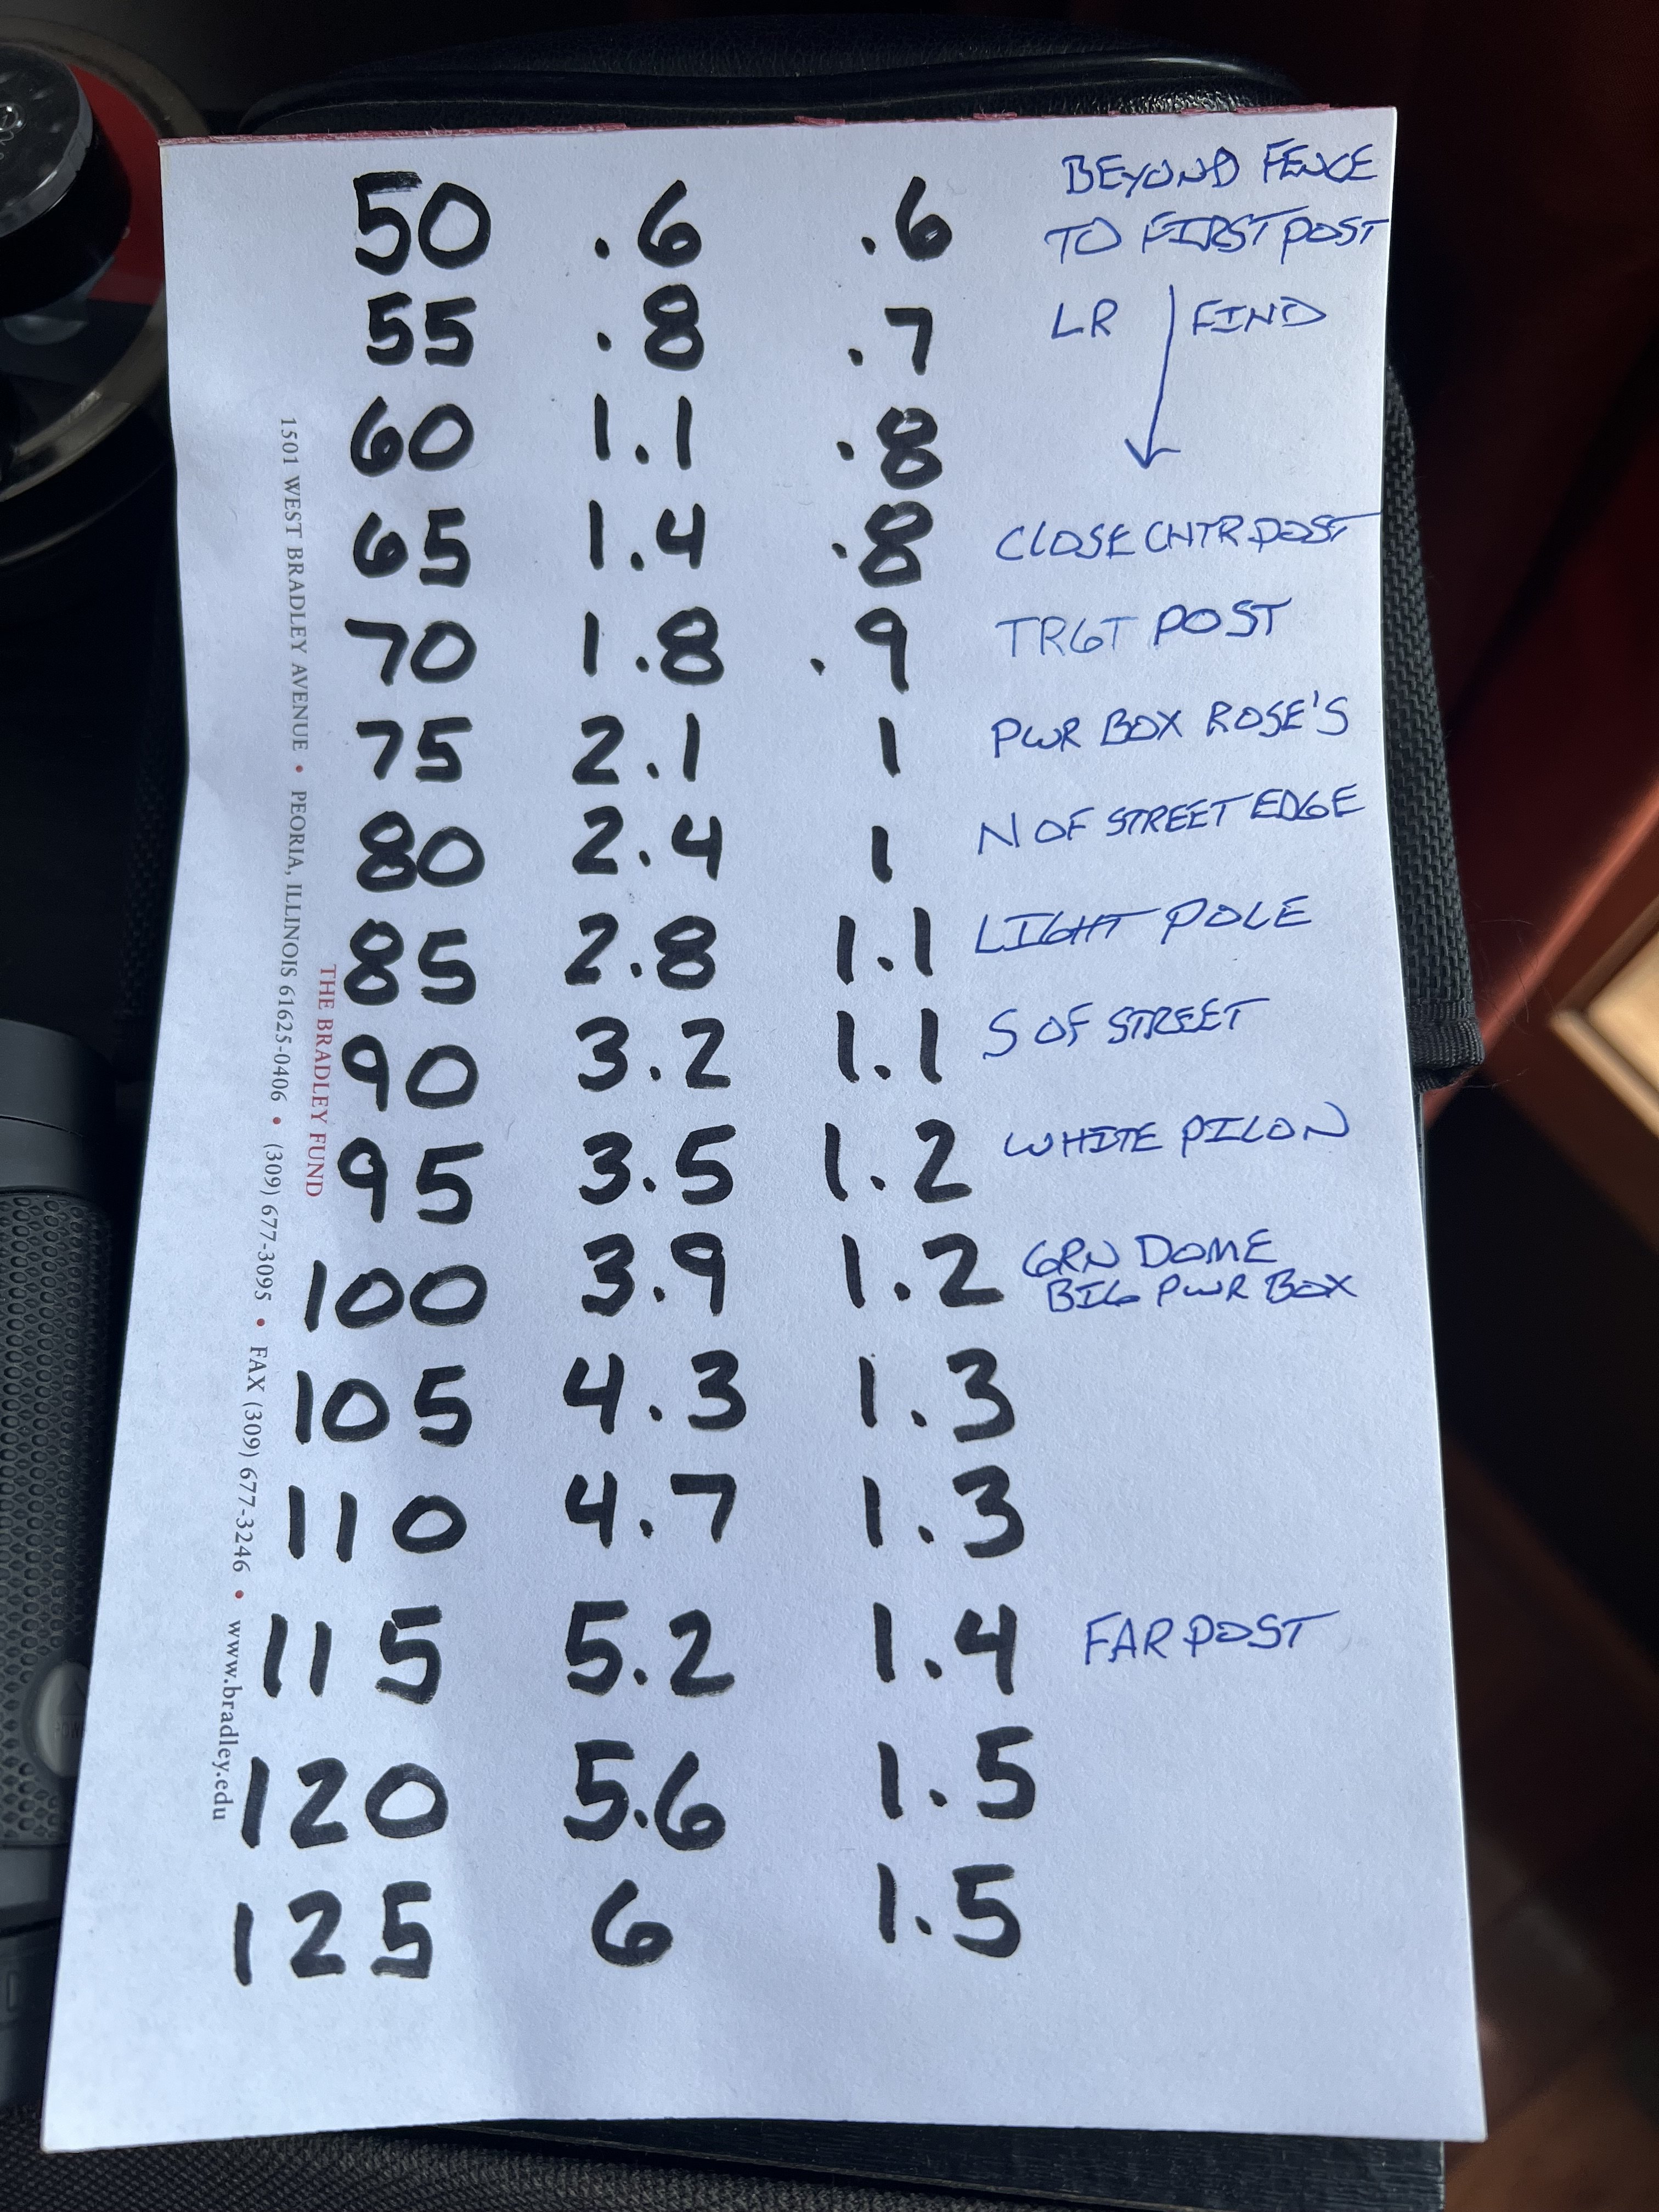 BEYOND FENCE
50 .6 .6 TO FIRST POST
55 .8 .7 LR FIND
60 1.1 .8
65 1.4 .8 CLOSE CNTR POST
70 1.8 .9 TRGT POST
75 2.1 1 PWR BOX ROSE'S
80 2.4 1 N OF STREET EDGE
85 2.8 1.1 LIGHT POLE
90 3.2 1.1 S OF STREET
95 3.5 1.2 WHITE PILON
100 3.9 1.2 GRN DOME
BIG PWR BOX
105 4.3 1.3
110 4.7 1.3
115 5.2 1.4 FAR POST
120 5.6 1.5
125 6 1.5
THE BRADLEY FUND
1501 WEST BRADLEY AVENUE • PEORIA, ILLINOIS 61625-0406 • (309) 677-3095 • FAX (309) 677-3246 • www.bradley.edu